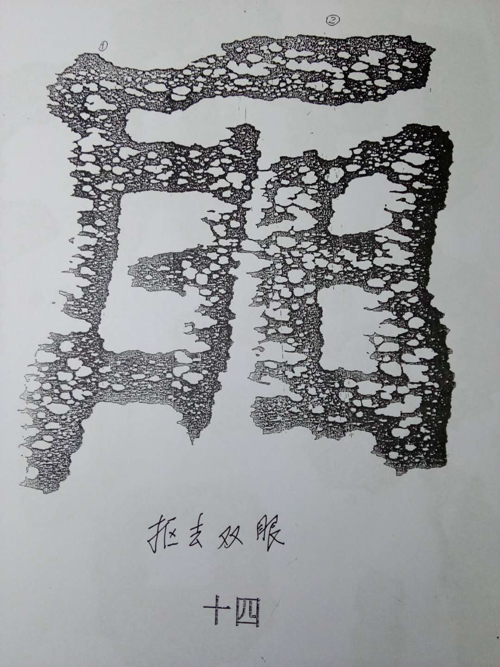 ① ②
抠去双眼
十四